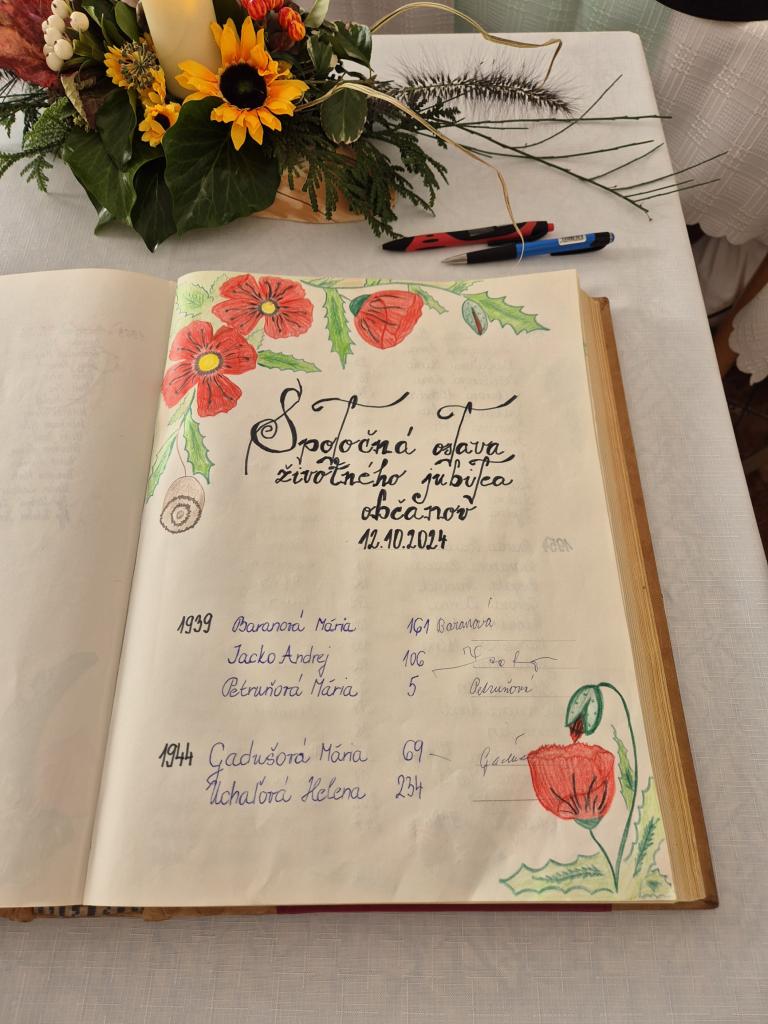 Spoločná oslava
životného jubilea
občanov
12.10.2024
1939 Baranová Mária 161 Baranová
Jacko Andrej 106
Petruňová Mária 5 Petruňová
1944 Gadušová Mária 69
Uchaľová Helena 234